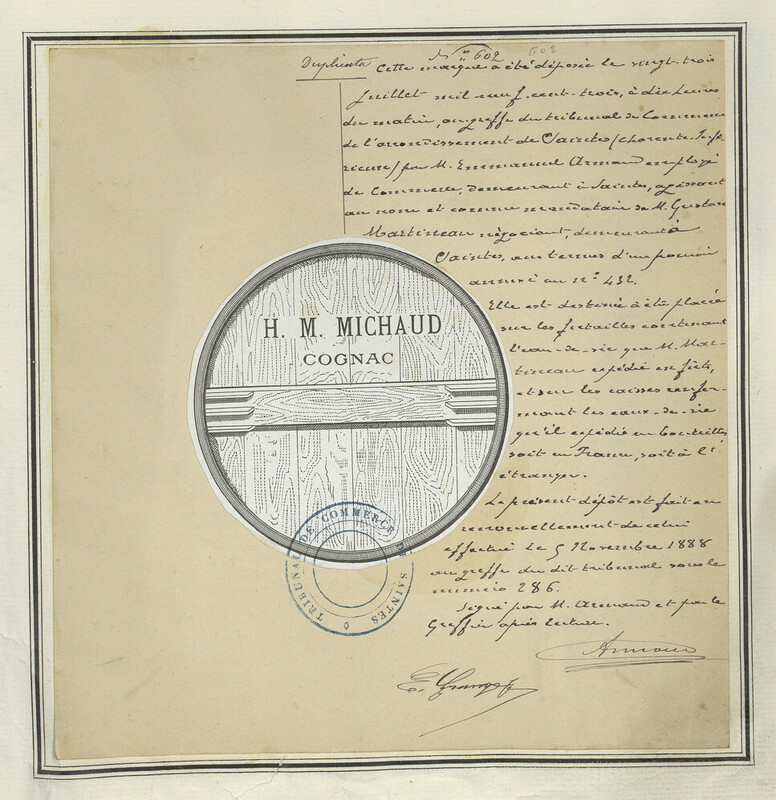 Duplicata
Nº 602 602
Cette marque a été déposée le vingt-trois
Juillet mil neuf cent-trois, à dix heures
du matin, au greffe du tribunal de Commerce
de l'arrondissement de Saintes (Charente-Infé
rieure) par M. Emmanuel Armand employé
de Commerce, demeurant à Saintes, agissant
au nom et comme mandataire de M. Gustave
Martineau négociant, demeurant à
Saintes, aux termes d'un pouvoir
annexé au nº 432.
Elle est destinée à être placée
sur les futailles contenant
l'eau-de-vie que M. Mar-
tineau expédie en fûts,
et sur les caisses renfer-
mant les eaux-de-vie
qu'il expédie en bouteilles
soit en France, soit à l'
étranger.
Le présent dépôt est fait en
renouvellement de celui
effectué le 5 Novembre 1888
au greffe du dit tribunal sous le
numéro 286.
Signé par M. Armand et par le
Greffier après lecture.
Armand
H. M. MICHAUD
COGNAC
TRIBUNAL DE COMMERCE DE SAINTES